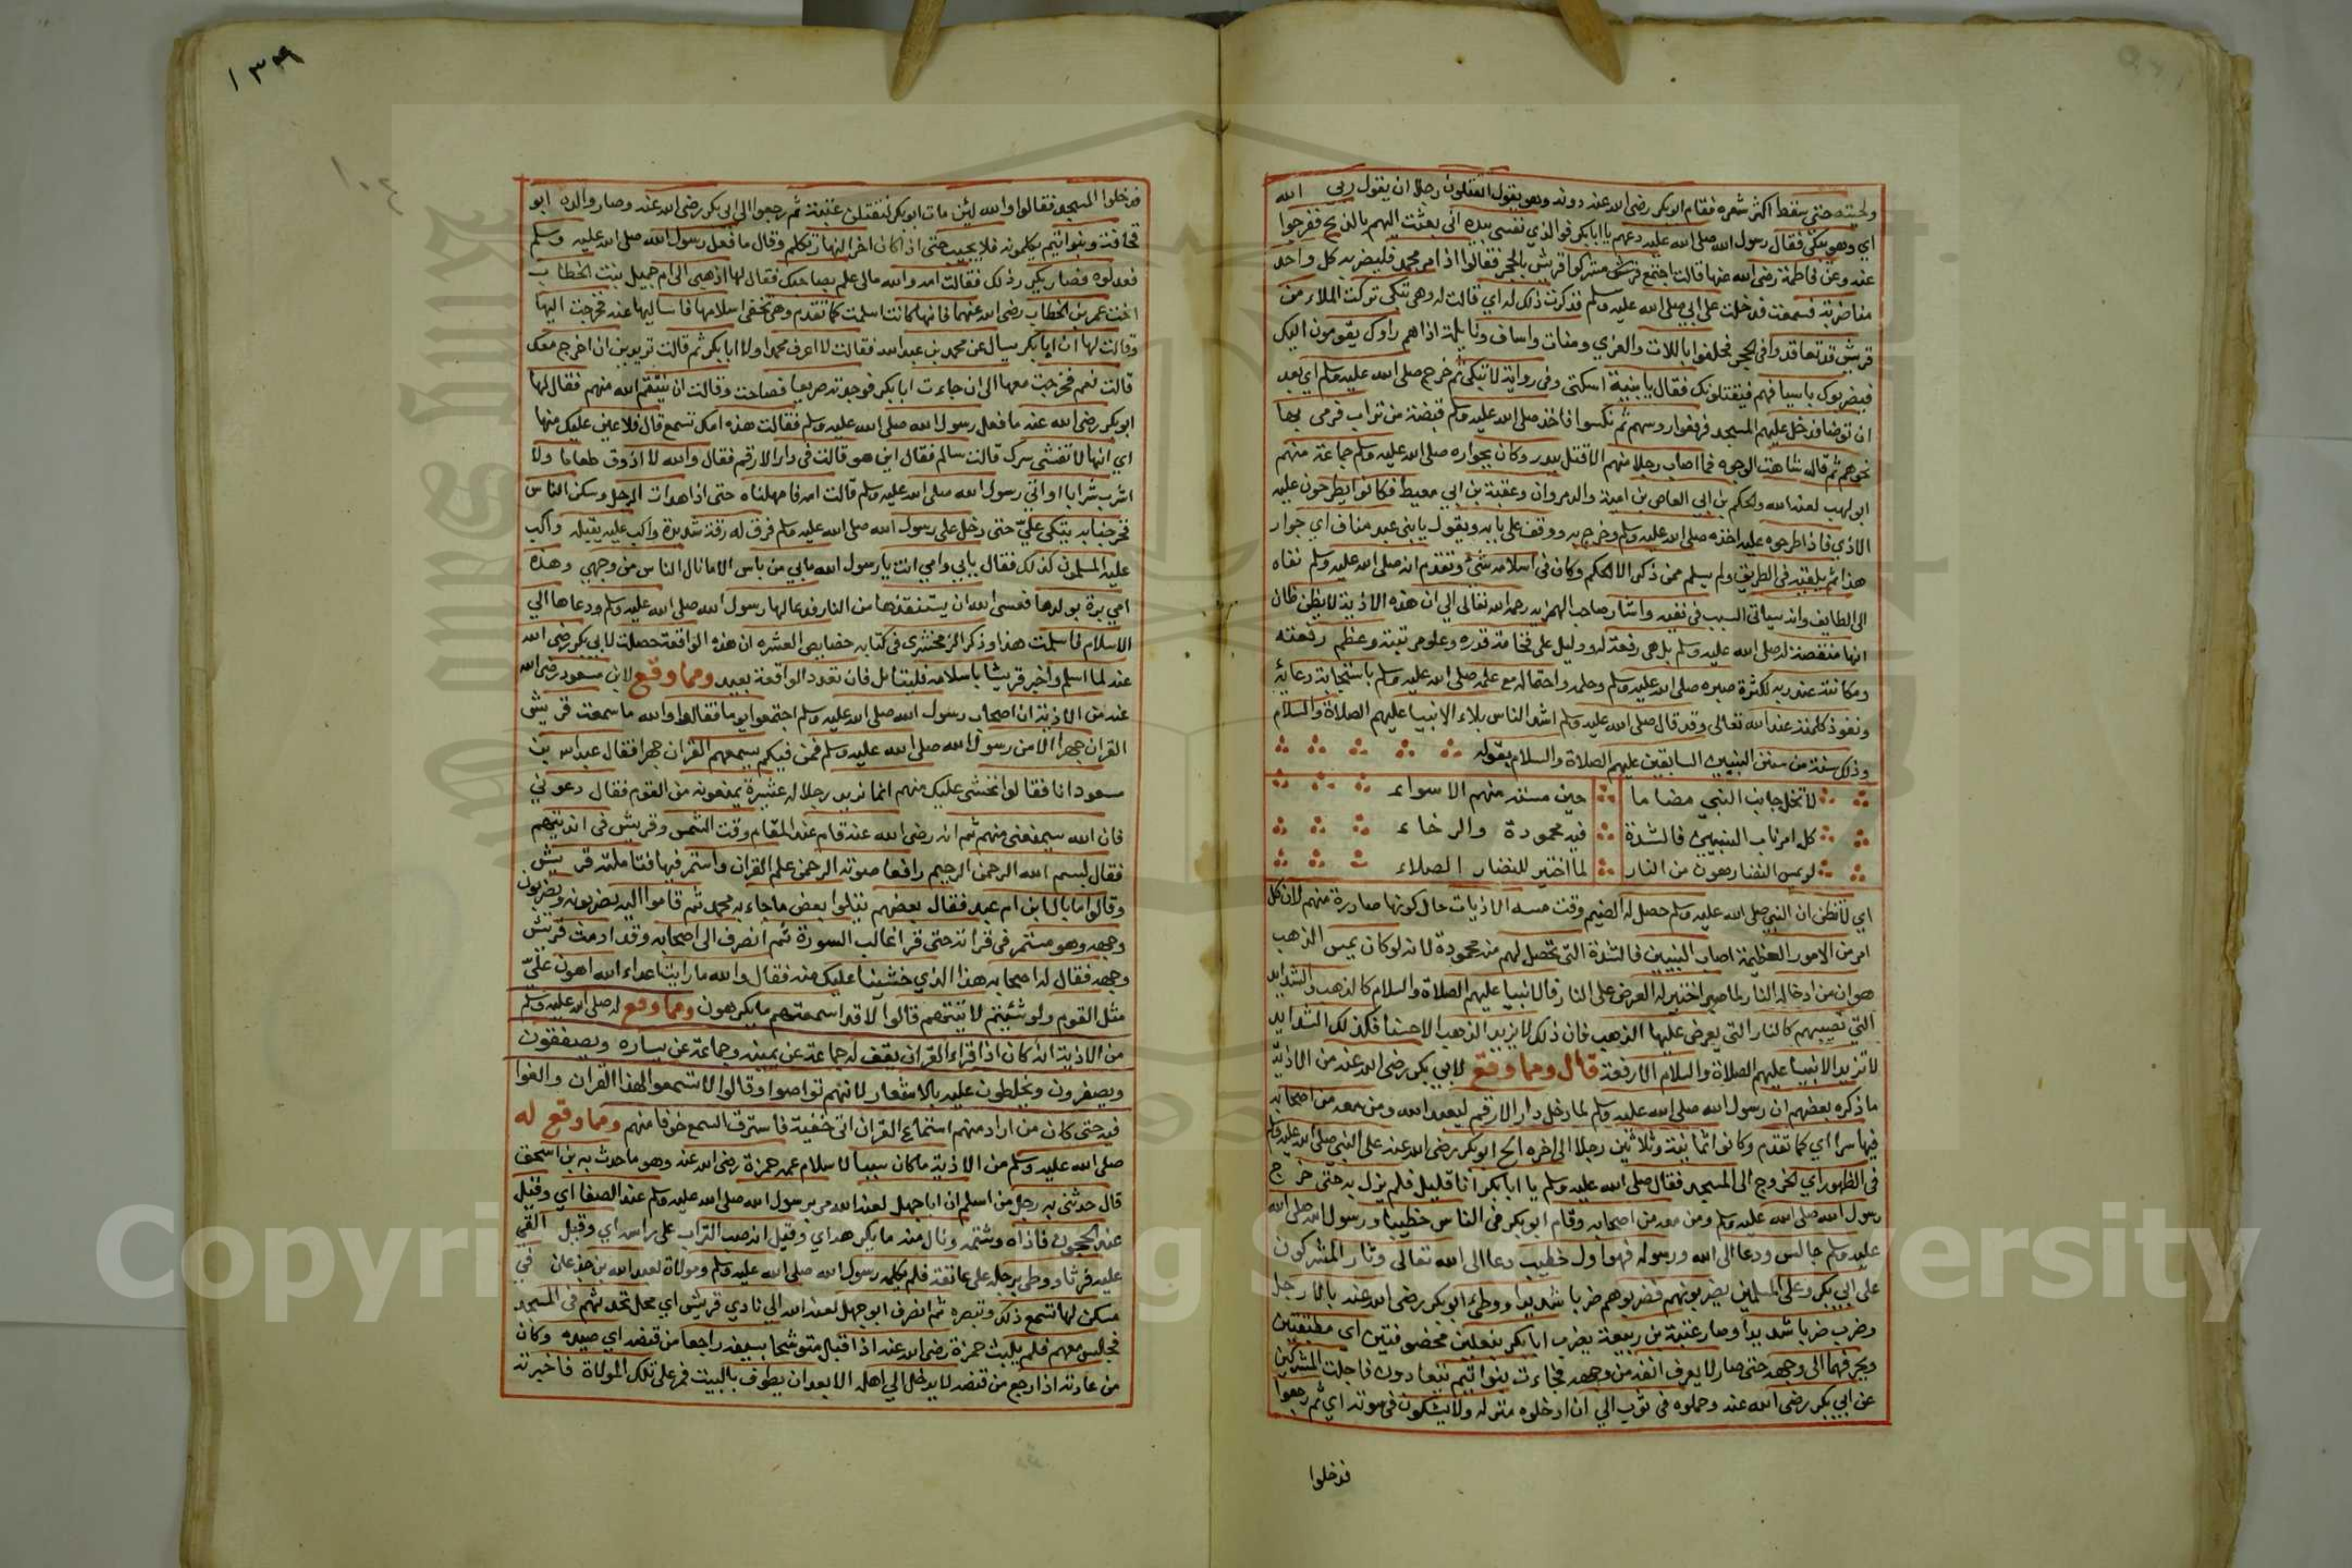 ولحيته حتى سقط اكثر شعره فقام ابو بكر رضى الله عنه دونه وهو يقول اتقتلون رجلا ان يقول ربي الله
اي وهو يبكي فقال رسول الله صلى الله عليه دعهم يا ابا بكر فوالذي نفسي بيده اني بعثت اليهم بالذبح ففرجوا
عنه وعن فاطمة رضى الله عنها قالت اجتمع مشركوا قريش بالحجر فقالوا اذا مر محمد فليضربه كل واحد
منا ضربة فسمعت فدخلت على ابي صلى الله عليه وسلم فذكرت ذلك له اي قالت له وهي تبكي تركت الملاء من
قريش قد تعاقدوا في الحجر فحلفوا باللات والعزي ومنات واساف ونايلة اذا هم راوك يقومون اليك
فيضربوك باسيافهم فيقتلونك فقال يا بنية اسكتي وفي رواية لا تبكي ثم خرج صلى الله عليه وسلم اي بعد
ان توضا فدخل عليهم المسجد فرفعوا روسهم ثم نكسوا فاخذ صلى الله عليه وسلم قبضة من تراب فرمى بها
نحوهم ثم قال شاهت الوجوه فما اصاب رجلا منهم الا قتل ببدر وكان بجواره صلى الله عليه وسلم جماعة منهم
ابو لهب لعنه الله والحكم بن ابي العاص بن امية والد مروان وعقبة بن ابي معيط فكانوا يطرحون عليه
الاذي فاذا طرحوه عليه اخذه صلى الله عليه وسلم وخرج به ووقف على بابه ويقول يا بني عبد مناف اي جوار
هذا ثم يلقيه في الطريق ولم يسلم ممن ذكر الا الحكم وكان في اسلامه شئ وتقدم انه صلى الله عليه وسلم نفاه
الى الطايف وانه سياتي السبب في نفيه واشار صاحب الهمزيه رحمه الله تعالى الى ان هذه الاذية لا يظن ظان
انها منقصة له صلى الله عليه وسلم بل هي رفعة له ودليل على فخامة قدره وعلو مرتبته وعظم رفعته
ومكانته عند ربه لكثرة صبره صلى الله عليه وسلم وحلمه واحتماله مع علمه صلى الله عليه وسلم باستجابة دعايه
ونفوذ كلمته عند الله تعالى وقد قال صلى الله عليه وسلم اشد الناس بلاء الانبيا عليهم الصلاة والسلام
وذلك سنة من سنن النبيين السابقين عليهم الصلاة والسلام بقوله
لا تخل جانب النبي مضاما حين مسته منهم الاسواء
كل امر ناب النبيين فالشدة فيه محمودة والرخاء
لو يمس النضار هون من النار لما اختير للنضار الصلاء
اي لا تظن ان النبي صلى الله عليه وسلم حصل له الضيم وقت مسه الاذيات حال كونها صادرة منهم لان كل
امر من الامور العظيمة اصاب النبيين فالشدة التي تحصل لهم منه محمودة لانه لو كان يمس الذهب
هوان من ادخاله النار لما اختير له العرض على النار فالانبيا عليهم الصلاة والسلام كالذهب والشدايد
التي تصيبهم كالنار التي يعرض عليها الذهب فان ذلك لا يزيد الذهب الا حسنا فكذلك الشدايد
لا تزيد الانبيا عليهم الصلاة والسلام الا رفعة قال ومما وقع لابي بكر رضى الله عنه من الاذية
ما ذكره بعضهم ان رسول الله صلى الله عليه وسلم لما دخل دار الارقم ليعبد الله ومن معه من اصحابه
فيها سرا اي كما تقدم وكانوا ثمانية وثلاثين رجلا الى اخره الح ابو بكر رضى الله عنه على النبي صلى الله عليه وسلم
في الظهور اي الخروج الى المسجد فقال صلى الله عليه وسلم يا ابا بكر انا قليل فلم يزل به حتى خرج
رسول الله صلى الله عليه وسلم ومن معه من اصحابه وقام ابو بكر في الناس خطيبا ورسول الله صلى الله
عليه وسلم جالس ودعا الى الله ورسوله فهو اول خطيب دعا الى الله تعالى وثار المشركون
على ابي بكر وعلى المسلمين يضربونهم فضربوهم ضربا شديدا ووطئ ابو بكر رضى الله عنه بالارجل
وضرب ضربا شديدا وصار عتبة بن ربيعة يضرب ابا بكر بنعلين مخصوفتين اي مطبقتين
ويحرفهما الى وجهه حتى صار لا يعرف انفه من وجهه فجاءت بنوا تيم يتعادون فاجلت المشركين
عن ابي بكر رضى الله عنه وحملوه في ثوب الي ان ادخلوه منزله ولا يشكون في موته اي ثم رجعوا
فدخلوا
١٣٩
فدخلوا المسجد فقالوا والله لئن مات ابو بكر لنقتلن عتبة ثم رجعوا الى ابي بكر رضى الله عنه وصار والده ابو
قحافة وبنوا تيم يكلمونه فلا يجيب حتى اذا كان اخر النهار تكلم وقال ما فعل رسول الله صلى الله عليه وسلم
فعذلوه فصار يكرر ذلك فقالت امه والله مالي علم بصاحبك فقال لها اذهبي الى ام جميل بنت الخطاب
اخت عمر بن الخطاب رضى الله عنهما فانها كانت اسلمت كما تقدم وهي تخفي اسلامها فاساليها عنه فخرجت اليها
وقالت لها ان ابا بكر يسال عن محمد بن عبد الله فقالت لا اعرف محمدا ولا ابا بكر ثم قالت تريدين ان اخرج معك
قالت نعم فخرجت معها الى ان جاءت ابا بكر فوجدته صريعا فصاحت وقالت ان ينتقم الله منهم فقال لها
ابو بكر رضى الله عنه ما فعل رسول الله صلى الله عليه وسلم فقالت هذه امك تسمع قال فلا عين عليك منها
اي انها لا تفشي سرك قالت سالم فقال اين هو قالت في دار الارقم فقال والله لا اذوق طعاما ولا
اشرب شرابا او اتي رسول الله صلى الله عليه وسلم قالت امه فامهلناه حتى اذا هدات الرجل وسكن الناس
فخرجنا به يتكى عليّ حتى دخل على رسول الله صلى الله عليه وسلم فرق له رقة شديدة واكب عليه يقبله واكب
عليه المسلمون كذلك فقال بابي وامي انت يا رسول الله ما بي من باس الا ما نال الناس من وجهي وهذه
امي برة بولدها فعسى الله ان يستنقذها من النار فدعا لها رسول الله صلى الله عليه وسلم ودعاها الي
الاسلام فاسلمت هذا وذكر الزمخشري في كتابه خصايص العشره ان هذه الواقعة حصلت لابي بكر رضى الله
عنه لما اسلم واخبر قريشا باسلامه فليتامل فان تعدد الواقعة بعيد ومما وقع لابن مسعود رضى الله
عنه من الاذية ان اصحاب رسول الله صلى الله عليه وسلم اجتمعوا يوما فقالوا والله ما سمعت قريش
القران جهرا الا من رسول الله صلى الله عليه وسلم فمن فيكم يسمعهم القران جهرا فقال عبد الله بن
مسعود انا فقالوا نخشى عليك منهم انما نريد رجلا له عشيرة يمنعونه من القوم فقال دعوني
فان الله سيمنعني منهم ثم انه رضى الله عنه قام عند المقام وقت الشمس وقريش في انديتهم
فقال بسم الله الرحمن الرحيم رافعا صوته الرحمن علم القران واستمر فيها فتاملته قريش
وقالوا ما بال ابن ام عبد فقال بعضهم يتلوا بعض ما جاء به محمد ثم قاموا اليه يضربونه ويضربون
وجهه وهو مستمر في قراته حتى قرا غالب السورة ثم انصرف الى اصحابه وقد ادمت قريش
وجهه فقال له اصحابه هذا الذي خشينا عليك منه فقال والله ما رايت اعداء الله اهون عليّ
مثل القوم ولو شئتم لاتيتهم قالوا لا قد اسمعتهم ما يكرهون ومما وقع له صلى الله عليه وسلم
من الاذية انه كان اذا قراء القران يقف له جماعة عن يمينه وجماعة عن يساره ويصفقون
ويصفرون ويخلطون عليه بالاشعار لانهم تواصوا وقالوا لا تسمعوا لهذا القران والغوا
فيه حتى كان من اراد منهم استماع القران اتى خفية فاسترق السمع خوفا منهم ومما وقع له
صلى الله عليه وسلم من الاذية ما كان سببا لاسلام عمه حمزة رضى الله عنه وهو ما حدث به بن اسحق
قال حدثني به رجل من اسلم ان ابا جهل لعنه الله مر برسول الله صلى الله عليه وسلم عند الصفا اي وقيل
عند الحجون فاذاه وشتمه ونال منه ما يكرهه اي وقيل انه صب التراب على راسه اي وقيل القي
عليه فرثا ووطى برجله على عاتقه فلم يكلمه رسول الله صلى الله عليه وسلم ومولاة لعبد الله بن جدعان في
مسكن لها تسمع ذلك وتبصره ثم انصرف ابو جهل لعنه الله الي نادي قريش اي محل تحدثهم في المسجد
فجالس معهم فلم يلبث حمزة رضى الله عنه اذا اقبل متوشحا بسيفه راجعا من قنصه اي صيده وكان
من عادته اذا رجع من قنصه لا يدخل الي اهله الا بعد ان يطوف بالبيت فمر على تلك المولاة فاخبرته
Copyright © King Saud University